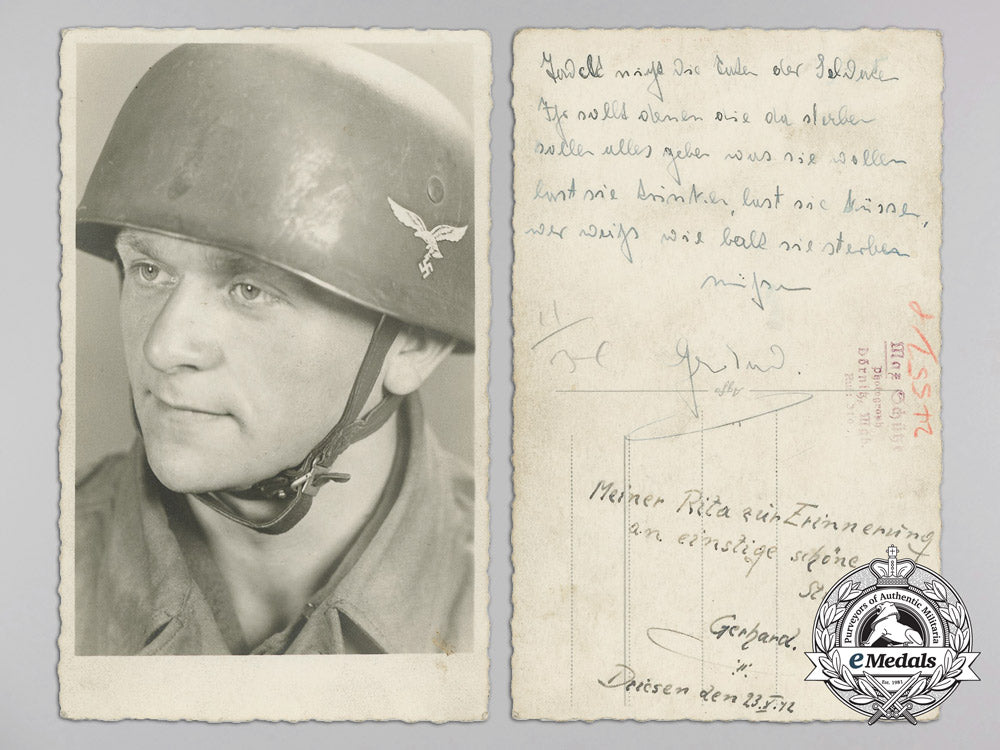 Tadelt nicht die Guten der Soldaten
Ihr sollt denen die da sterben
sollen alles geben was sie wollen
lasst sie trinken, lasst sie küssen,
wer weiß wie bald sie sterben
müssen
Gerhard.
Agfa
Max
Photograph
Meiner Rita zur Erinnerung
an einstige schöne
St
Gerhard.
Driesen den 23.V.42
Purveyors of Authentic Militaria
eMedals
Est. 1981